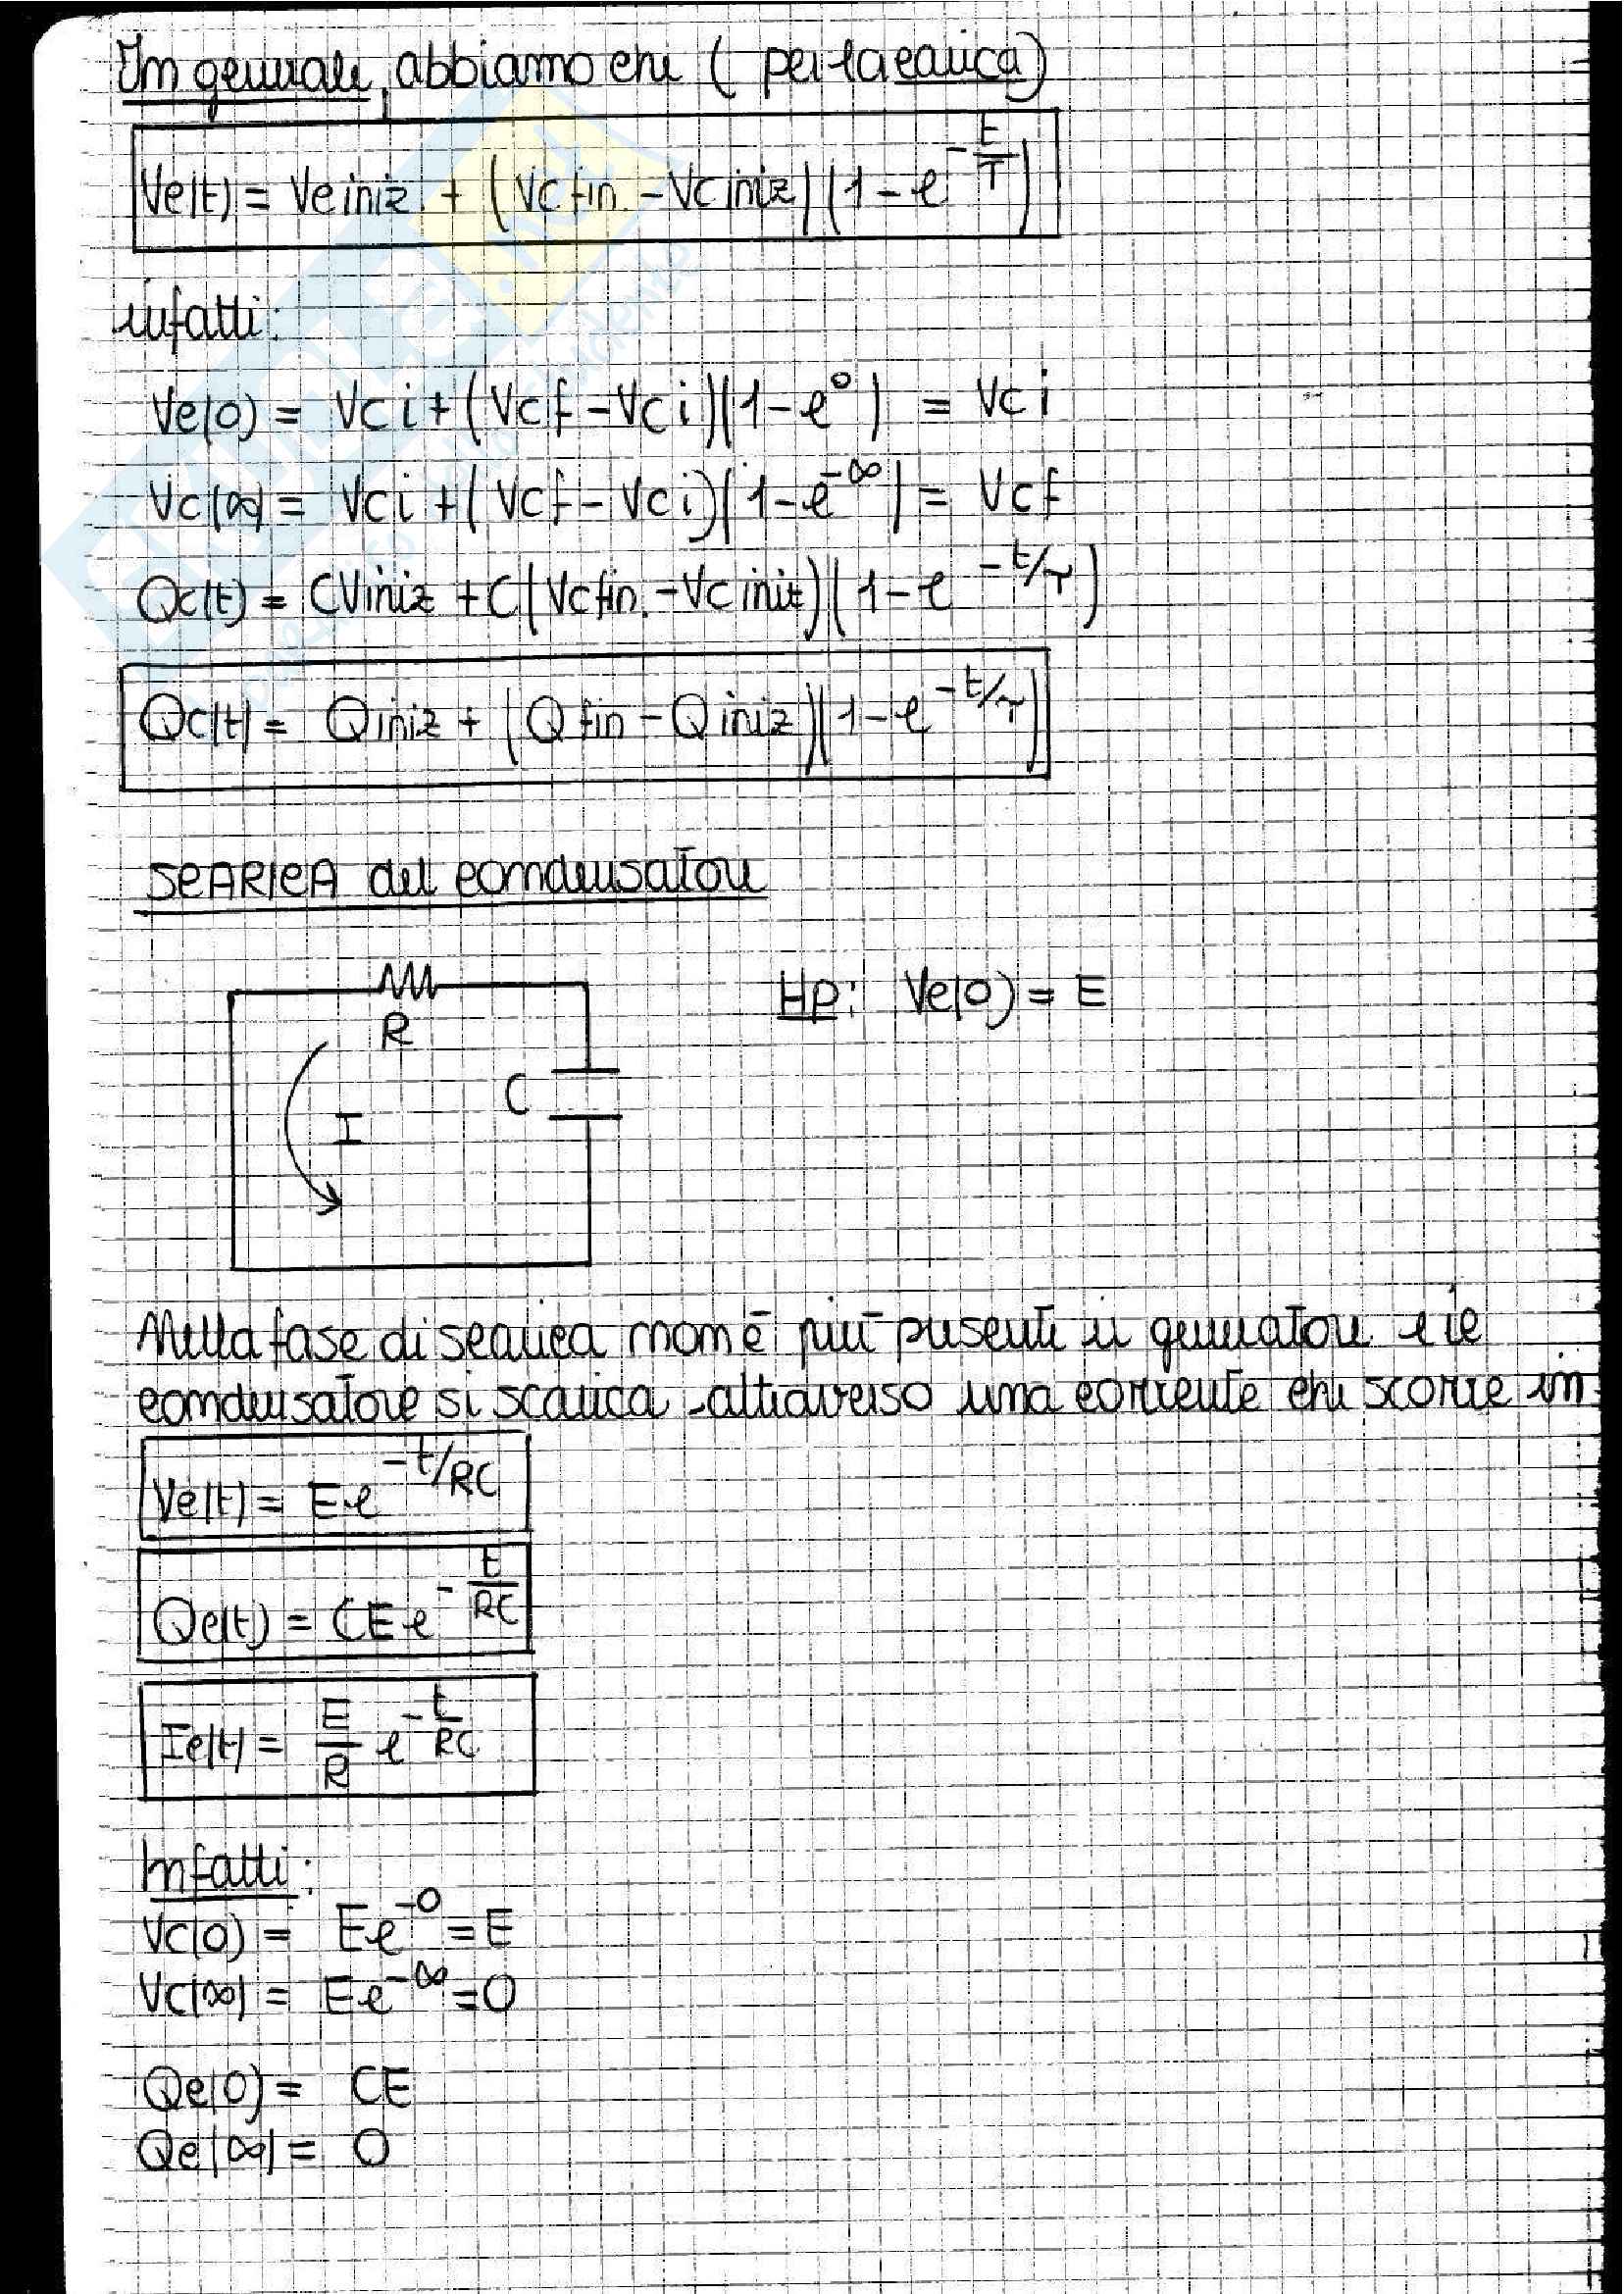 In generale, abbiamo che (per la carica)
Vc(t) = Vc iniz. + (Vc fin. - Vc iniz)(1 - e^-t/τ)
infatti:
Vc(0) = Vci + (Vcf - Vci)(1 - e^0) = Vci
Vc(∞) = Vci + (Vcf - Vci)(1 - e^-∞) = Vcf
Qc(t) = CViniz + C(Vc fin. - Vc iniz)(1 - e^-t/τ)
Qc(t) = Q iniz + (Q fin - Q iniz)(1 - e^-t/τ)
SCARICA del condensatore
Hp: Vc(0) = E
R
C
I
Nella fase di scarica non è più presente il generatore e il
condensatore si scarica attraverso una corrente che scorre in
Vc(t) = E e^-t/RC
Qc(t) = CE e^-t/RC
Ic(t) = E/R e^-t/RC
Infatti:
Vc(0) = E e^-0 = E
Vc(∞) = E e^-∞ = 0
Qc(0) = CE
Qc(∞) = 0